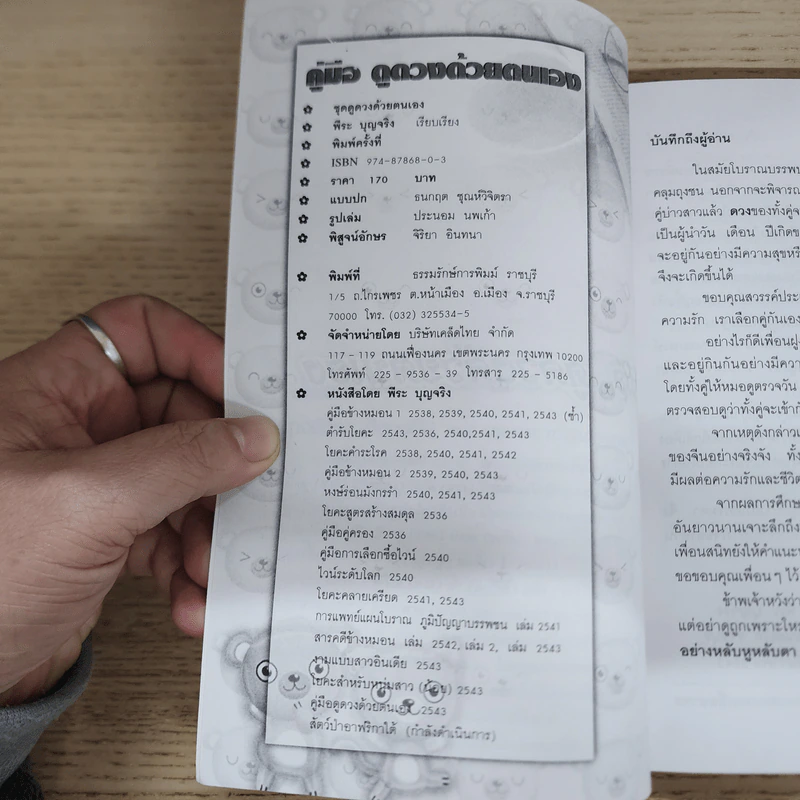 คู่มือ ดูดวงด้วยตนเอง
✿ ชุดดูดวงด้วยตนเอง
✿ พีระ บุญจริง เรียบเรียง
✿ พิมพ์ครั้งที่
✿ ISBN 974-87868-0-3
✿ ราคา 170 บาท
✿ แบบปก ธนกฤต ชุณห์วิจิตรา
✿ รูปเล่ม ประนอม นพเก้า
✿ พิสูจน์อักษร จิริยา อินทนา
✿ พิมพ์ที่ ธรรมรักษ์การพิมพ์ ราชบุรี
1/5 ถ.ไกรเพชร ต.หน้าเมือง อ.เมือง จ.ราชบุรี
70000 โทร. (032) 325534-5
✿ จัดจำหน่ายโดย บริษัทเคล็ดไทย จำกัด
117 - 119 ถนนเฟื่องนคร เขตพระนคร กรุงเทพ 10200
โทรศัพท์ 225 - 9536 - 39 โทรสาร 225 - 5186
✿ หนังสือโดย พีระ บุญจริง
คู่มือข้างหมอน 1 2538, 2539, 2540, 2541, 2543 (ซ้ำ)
ตำรับโยคะ 2543, 2536, 2540,2541, 2543
โยคะคำระโรค 2538, 2540, 2541, 2542
คู่มือข้างหมอน 2 2539, 2540, 2543
หงษ์ร่อนมังกรรำ 2540, 2541, 2543
โยคะสูตรสร้างสมดุล 2536
คู่มือคู่ครอง 2536
คู่มือการเลือกซื้อไวน์ 2540
ไวน์ระดับโลก 2540
โยคะคลายเครียด 2541, 2543
การแพทย์แผนโบราณ ภูมิปัญญาบรรพชน เล่ม 2541
สารคดีข้างหมอน เล่ม 2542, เล่ม 2, เล่ม 2543
งามแบบสาวอินเดีย 2543
โยคะสำหรับหนุ่มสาว 2543
คู่มือดูดวงด้วยตนเอง 2543
สัตว์ป่าอาฟริกาใต้ (กำลังดำเนินการ)
บันทึกถึงผู้อ่าน
ในสมัยโบราณบรรพบ
คลุมถุงชน นอกจากจะพิจารณ
คู่บ่าวสาวแล้ว ดวงของทั้งคู่จ
เป็นผู้นำวัน เดือน ปีเกิดข
จะอยู่กันอย่างมีความสุขหรื
จึงจะเกิดขึ้นได้
ขอบคุณสวรรค์ประ
ความรัก เราเลือกคู่กันเอง
อย่างไรก็ดีเพื่อนฝูง
และอยู่กินกันอย่างมีควา
โดยทั้งคู่ให้หมอดูตรวจวัน
ตรวจสอบดูว่าทั้งคู่จะเข้ากั
จากเหตุดังกล่าวเ
ของจีนอย่างจริงจัง ทั้ง
มีผลต่อความรักและชีวิต
จากผลการศึกษ
อันยาวนานเจาะลึกถึง
เพื่อนสนิทยังให้คำแนะน
ขอขอบคุณเพื่อน ๆ ไว้
ข้าพเจ้าหวังว่า
แต่อย่าดูถูกเพราะให
อย่างหลับหูหลับตา